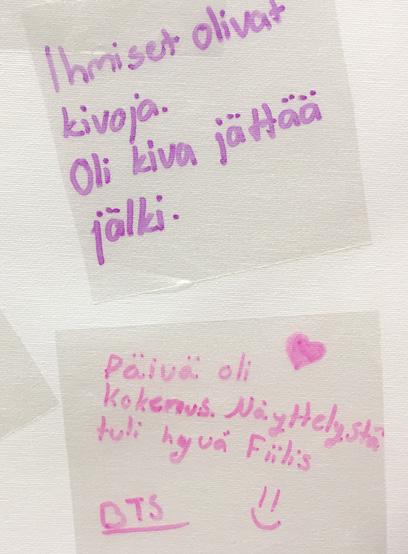 Ihmiset olivat
kivoja.
Oli kiva jättää
jälki.
Päivä oli
kokemus. Näyttelystä
tuli hyvä Fiilis
BTS